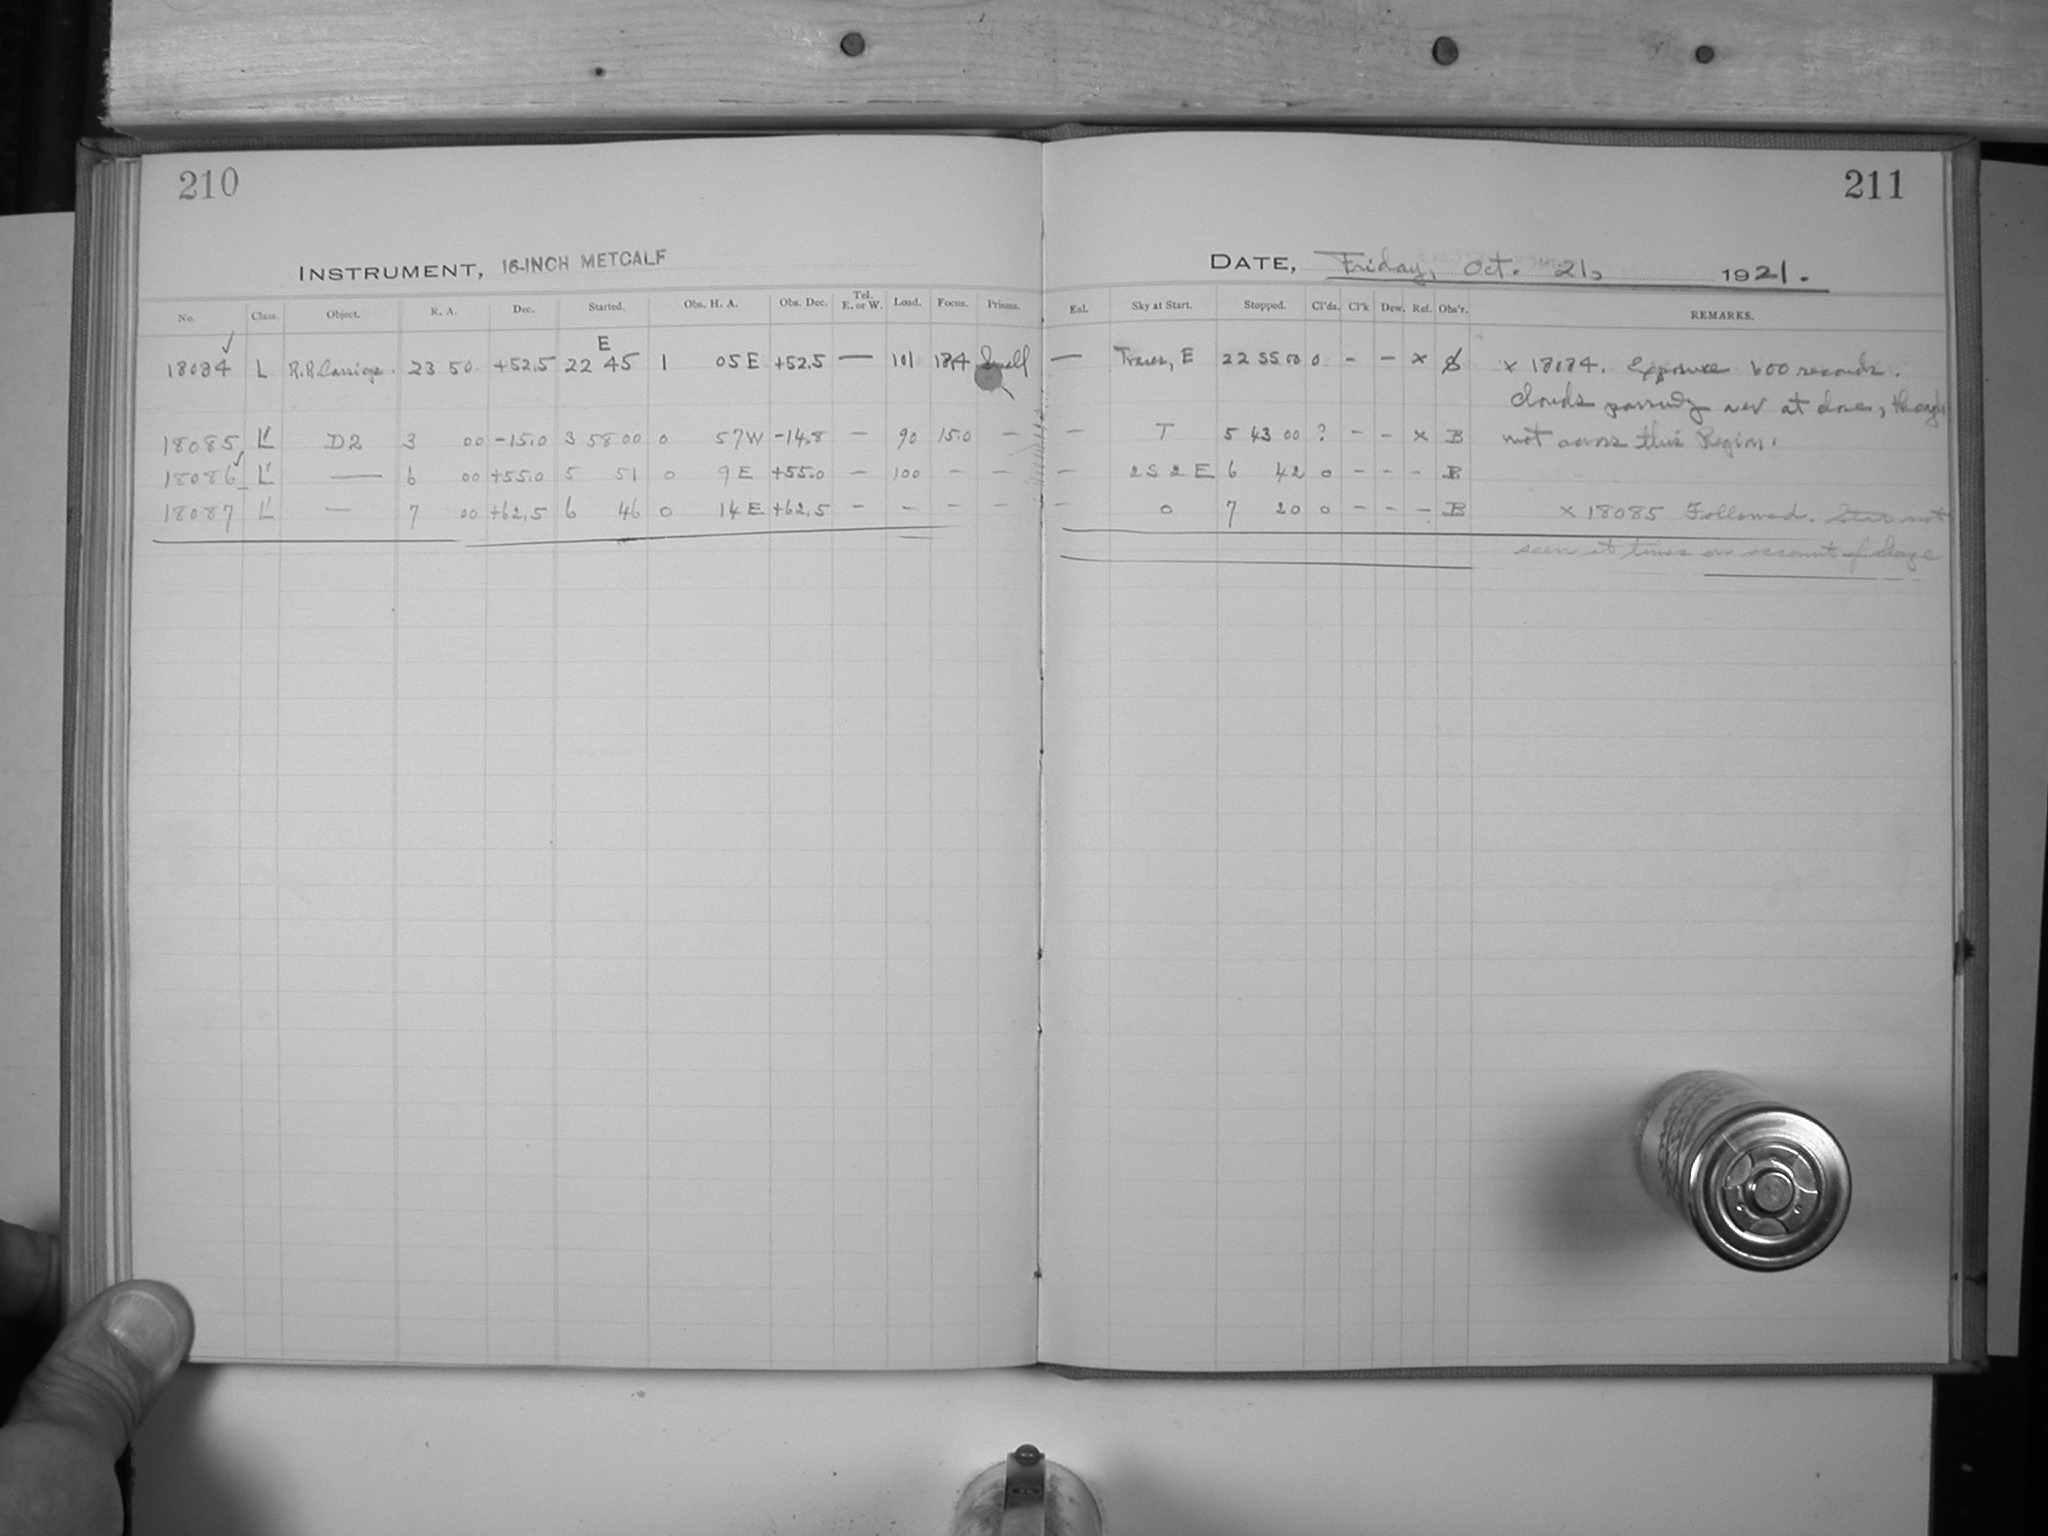 210
211
INSTRUMENT, 16-INCH METCALF
DATE, Friday, Oct. 21, 1921.
No. Class. Object. R. A. Dec. Started. Obs. H. A. Obs. Dec. Tel. E. or W. Load. Focus. Prisms. Enl. Sky at Start. Stopped. Cl'ds. Cl'k Dew. Ref. Obs'r. REMARKS.
E
18084 L 23 50 +52.5 22 45 1 05 E +52.5 — 101 Small — E 22 55 0 - - x x 18084. Exposure 600 seconds.
Clouds passing at close, though
18085 L' D2 3 00 -15.0 3 58 00 0 57W -14.8 — 90 15.0 — — T 5 43 00 ? - - x B not across this Region.
18086 L' — 6 00 +55.0 5 51 0 9 E +55.0 - 100 - - — 2 S 2 E 6 42 0 - - - B
18087 L' — 7 00 +62.5 6 46 0 14 E +62.5 - - - - — 0 7 20 0 - - - B x 18085 Followed. Star not
seen at times on account of